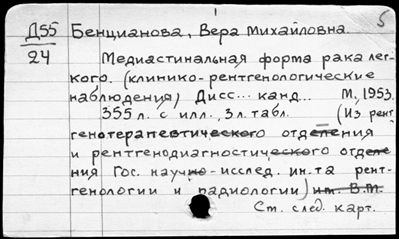 5
Д55 Бенцианова, Вера Михайловна.
24
Медиастинальная форма рака лег-
кого. (клинико-рентгенологические
наблюдения) Дисс... канд... М., 1953.
355 л. с илл., 3л. табл. (Из рент
генотерапевтического отделения
и рентгенодиагностического отделе
ния Гос. научно-исслед. ин-та рент-
генологии и радиологии) им. В.М.
Ст. след. карт.